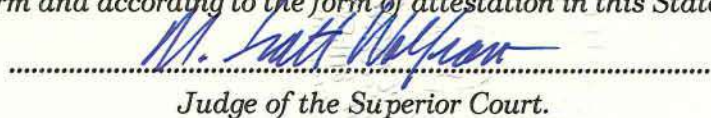 rm and according to the form of attestation in this State
M. Scott Wolfram
Judge of the Superior Court.